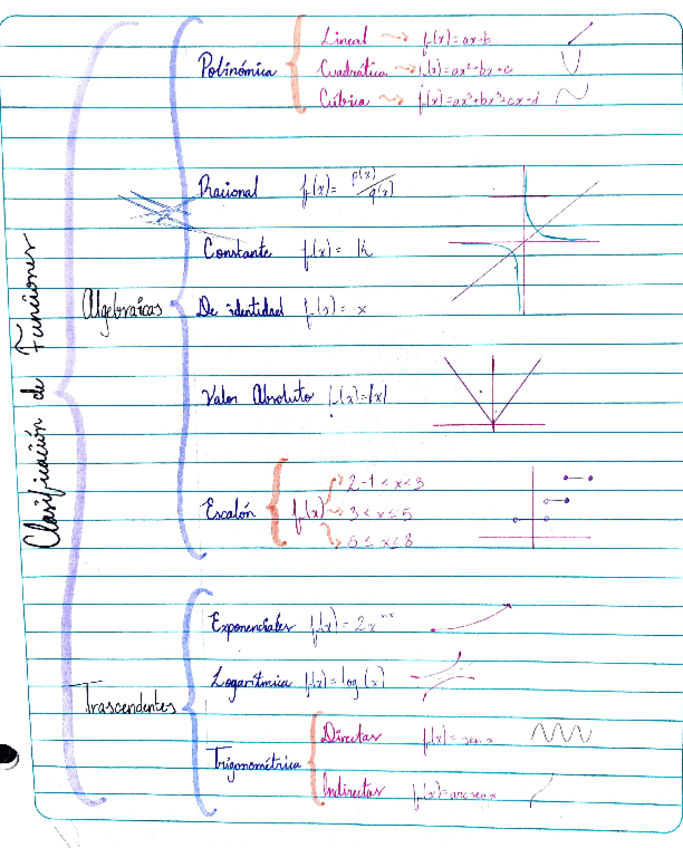 Clasificación de Funciones
Algebraicas
Polinómica
Lineal → f(x)=ax+b
Cuadrática → f(x)=ax²+bx+c
Cúbica → f(x)=ax³+bx³+cx+d
Racional f(x)= p(x)/q(x)
Constante f(x)= K
De identidad f(x)= x
Valor Absoluto f(x)=|x|
Escalón f(x)
2-1<x<3
3<x≤5
5≤x<8
Trascendentes
Exponenciales f(x)=2x
Logarítmica f(x)=log (x)
Trigonométrica
Directas f(x)= sen x
Indirectas f(x)=arcsen x